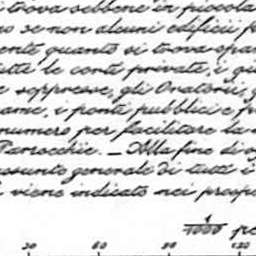 i trova sebbene in piccola
se non alcuni edifici p
ente quanto si trova spar
utte le corti private, i gi
e soppresse, gli Oratorii, g
ame, i ponti pubblici e p
numero per facilitare la
Parocchie. — Alla fine di og
assunto generale di tutti i
viene indicato nei prospe
1/1000 pe
30 60 90 120